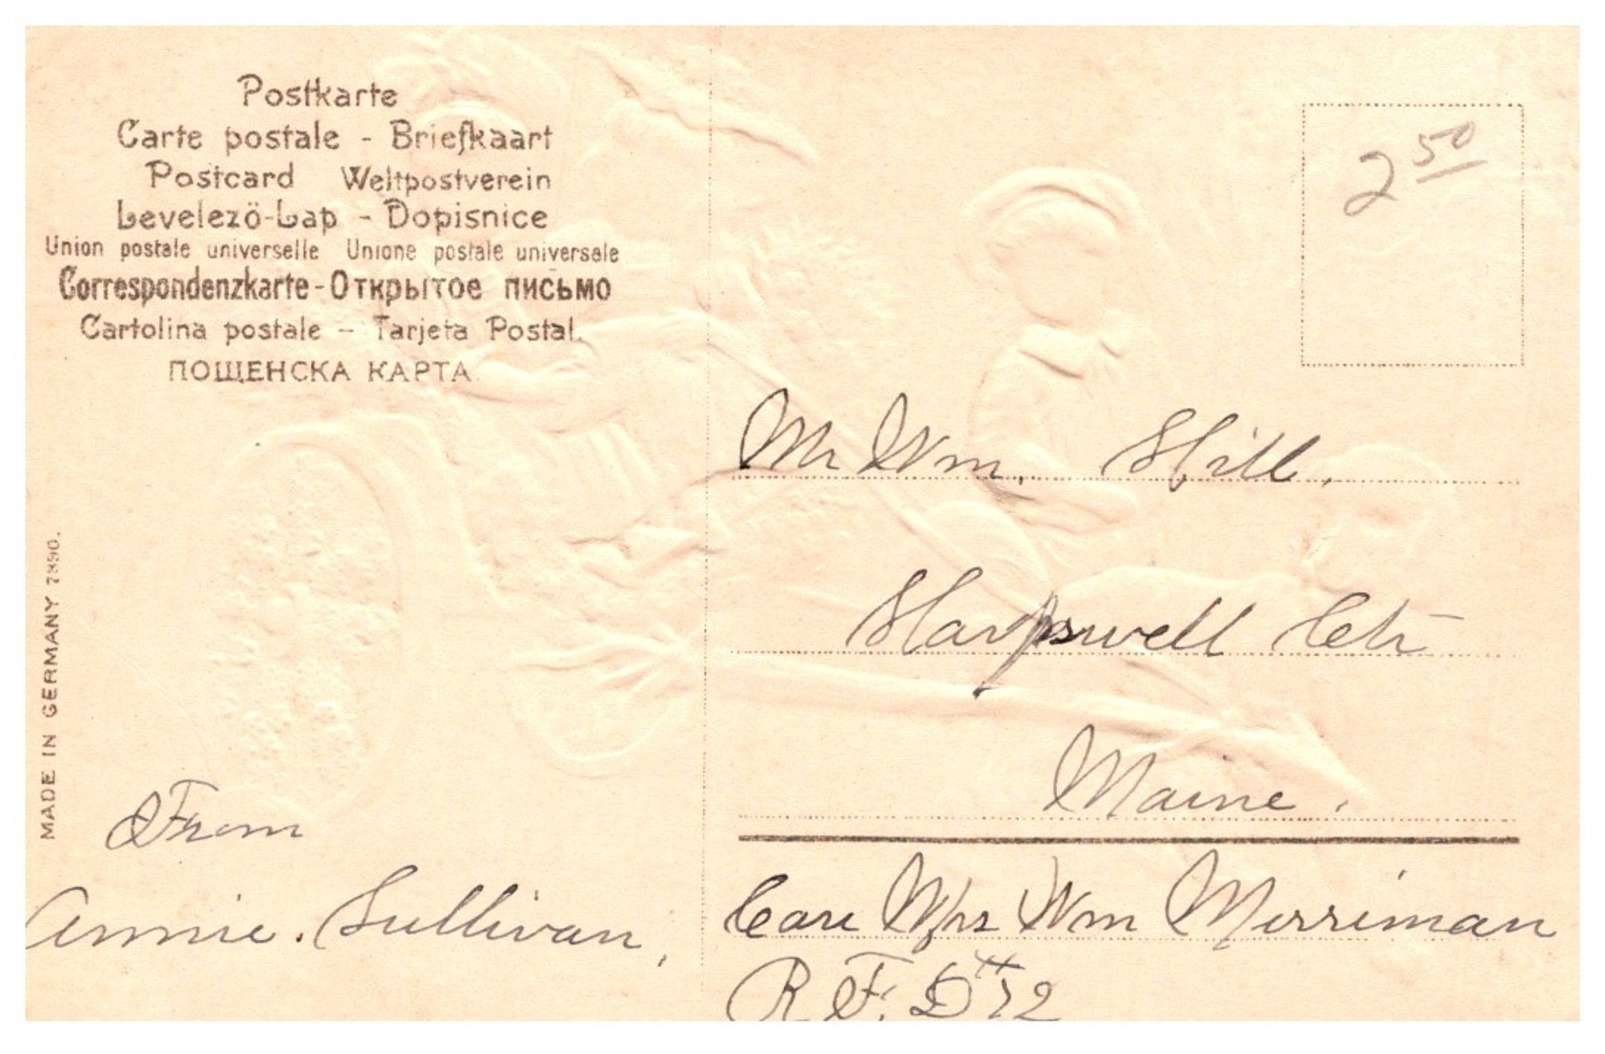 Postkarte
Carte postale - Briefkaart
Postcard Weltpostverein
Levelezö-Lap - Dopisnice
Union postale universelle Unione postale universale
Correspondenzkarte - Открытое письмо
Cartolina postale - Tarjeta Postal.
ПОЩЕНСКА КАРТА
MADE IN GERMANY 7890.
2 50
Mr Wm. Hill.
Harpswell Ctr
Maine.
Care Mrs Wm Merriman
R. F. D #12
From
Annie. Sullivan,